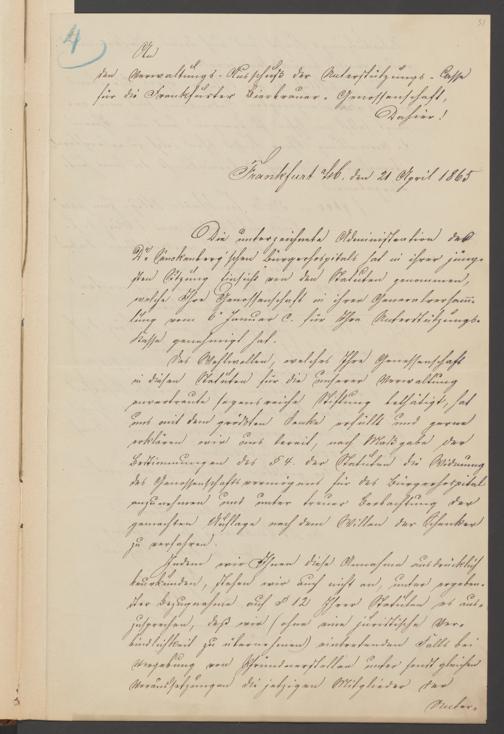 31
4
An
den Verwaltungs-Ausschuß der Unterstützungs-Casse
für die Frankfurter Bierbrauer-Genossenschaft,
Dahier!
Frankfurt a/M. den 21 April 1865
Die unterzeichnete Administration des
Dr. Senckenberg'schen Bürgerhospitals hat in ihrer jüng-
sten Sitzung Einsicht von den Statuten genommen,
welche Ihre Genossenschaft in ihrer Generalversamm-
lung vom 6 Januar c. für Ihre Unterstützungs-
Kasse genehmigt hat.
Das Wohlwollen, welches Ihre Genossenschaft
in diesen Statuten für die unserer Verwaltung
anvertraute segensreiche Stiftung bethätigt, hat
uns mit dem größten Danke erfüllt und gerne
erklären wir uns bereit, nach Maßgabe der
Bestimmungen des § 4. der Statuten die Widmung
des Genossenschaftsvermögens für das Bürgerhospital
anzunehmen und unter treuer Beobachtung der
gemachten Auflage nach dem Willen der Schenker
zu verfahren.
Indem wir Ihnen diese Annahme ausdrücklich
beurkunden, stehen wir auch nicht an, unter ergeben-
ster Bezugnahme auf § 12 Ihrer Statuten es aus-
zusprechen, daß wir (ohne eine juristische Ver-
bindlichkeit zu übernehmen) eintretenden Falls bei
Vergebung von Pfründnerstellen unter sonst gleichen
Voraussetzungen die jetzigen Mitglieder der
Unter-